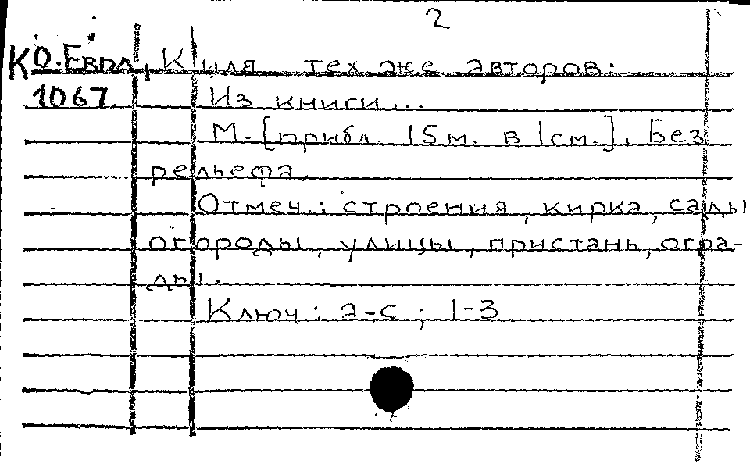 2
КО.Евпл, Киля тех же авторов.
1067 Из книги...
М. [прибл. 15м. в 1см.]. Без
рельефа.
Отмеч.: строения, кирка, сады
огороды, улицы, пристань, огра-
ды.
Ключ: а-с; 1-3